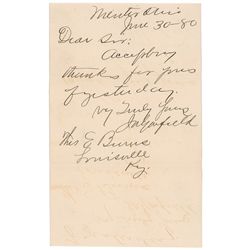 Mentor Ohio
June 30-80
Dear Sir:
Accept my
thanks for yours
of yesterday.
Very Truly Yours
JAGarfield
Thos E Burns
Louisville
Ky.